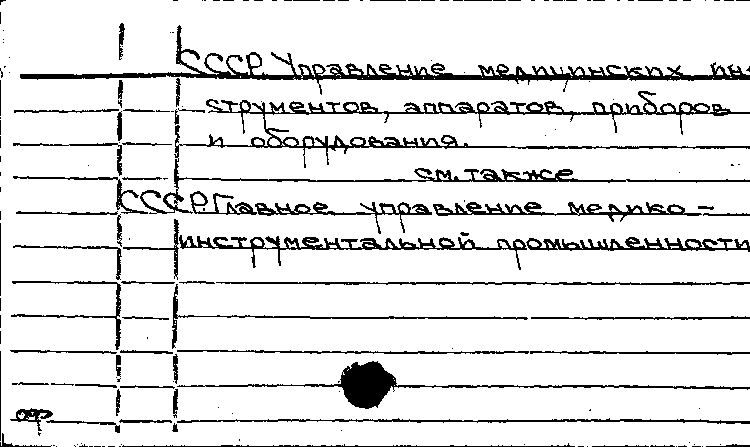 СССР. Управление медицинских ин-
струментов, аппаратов, приборов
и оборудования.
см. также
СССР. Главное управление медико-
инструментальной промышленности